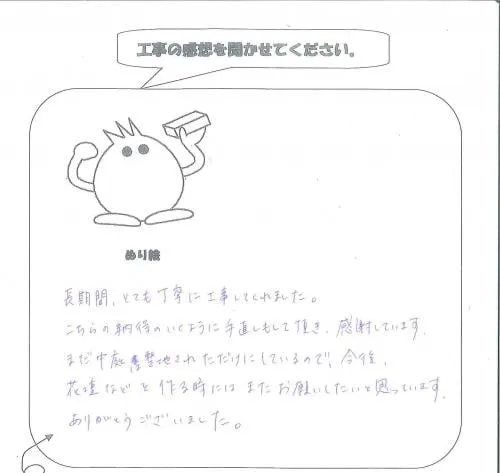 工事の感想を聞かせてください。
ぬり絵
長期間、とても丁寧に工事してくれました。
こちらの納得のいくように手直しもして頂き、感謝しています。
まだ中庭整地されただけにしているので、今後、
花壇などを作る時にはまたお願いしたいと思っています。
ありがとうございました。